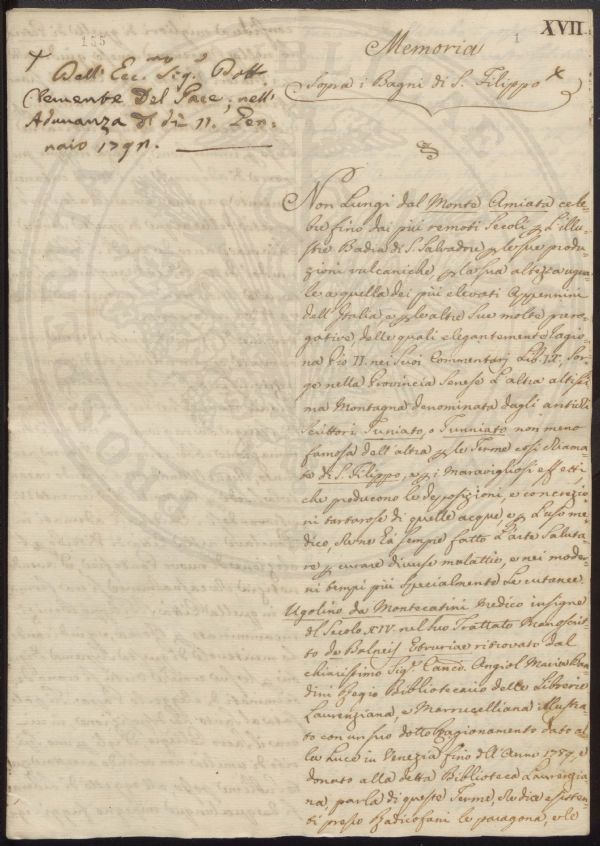 XVII
155
1
† Dell' Ecc.mo Sig.r Dott.
Clemente Del Pace, nell'
Adunanza del dì 11. Gen=
naio 1791.
Memoria
Sopra i Bagni di S. Filippo ×
Non Lungi dal Monte Amiata cele=
bre fino dai più remoti Secoli p L'illu=
stre Badia di S. Salvadore p le sue produ=
zioni vulcaniche p la sua altezza ugua=
le a quella dei più elevati Appennini
dell'Italia e p le altre sue molte prero=
gative delle quali elegantemente ragio=
na Pio II. nei suoi Commentarj Lib. IX. Sor=
ge nella Provincia Senese L'altra altissi=
ma Montagna denominata dagli antichi
Scrittori Tuniato, o Tunniato non meno
famosa dell'altra p le Terme così chiama=
te di S. Filippo, e p i maravigliosi effetti
che producono le deposizioni, e concrezio=
ni tartarose di quelle acque, e p L'uso me=
dico, che ne ha sempre fatto L'arte Saluta=
re p curare diverse malattie, e nei moder=
ni tempi più specialmente le cutanee.
Ugolino da Montecatini Medico insigne
del Secolo XIV. nel suo Trattato Manoscrit=
to de Balneis Etruriae ritrovato dal
chiarissimo Sig.r Canco. Angiol Maria Ban=
dini Regio Bibliotecario delle Librerie
Laurenziana, e Marrucelliana illustra=
to con un suo dotto Ragionamento dato al=
la Luce in Venezia fino dell'Anno 1789, e
donato alla detta Biblioteca Laurenzia=
na, parla di queste Terme, che dice esisten=
ti presso Radicofani le paragona, e le